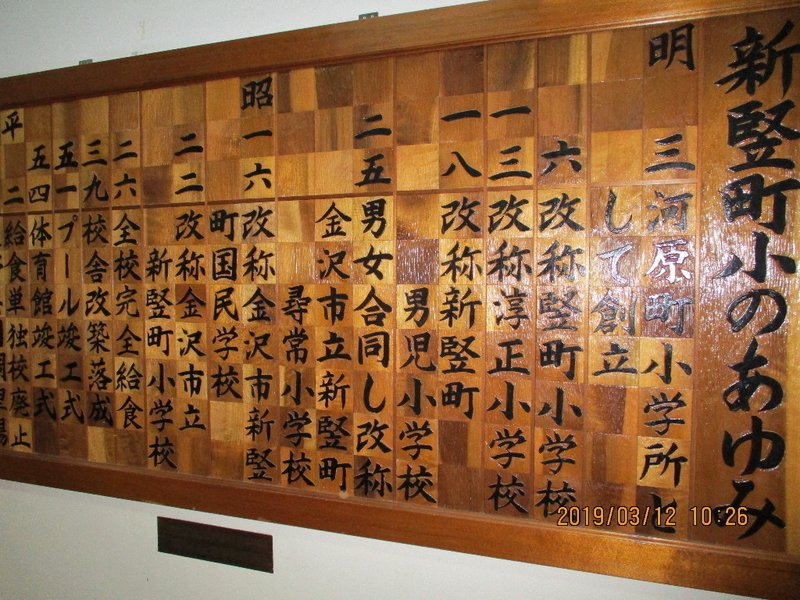 新竪町小のあゆみ
明 三 河原町小学所と
して創立
六 改称竪町小学校
一三 改称淳正小学校
一八 改称新竪町
男児小学校
二五 男女合同し改称
金沢市立新竪町
尋常小学校
昭一六 改称金沢市新竪
町国民学校
二二 改称金沢市立
新竪町小学校
二六 全校完全給食
三九 校舎改築落成
五一 プール竣工式
五四 体育館竣工式
平 二 給食単独校廃止
2019/03/12 10:26